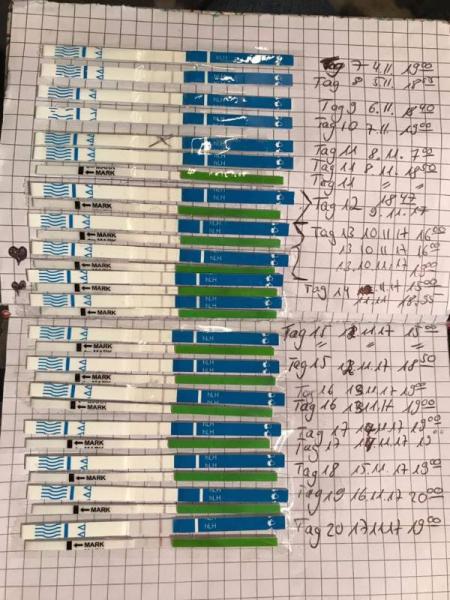 Tag 7 4.11. 19⁰⁰
Tag 8 5.11.
Tag 9 6.11. 40
Tag 10 7.11. 19⁰⁰
Tag 11 8.11. 7⁰⁰
Tag 11 8.11. 18⁵⁰
Tag 11 " "
MARK
Tag 12 18⁴⁷
9.11.17
MARK
Tag 13 10.11.17 16⁰⁰
MARK
13 10.11.17 16⁰⁰
13.10.11.17 19⁰⁰
MARK
NLH
Tag 14 11.17 15⁰⁰
MARK
NLH
11.11 18.55
MARK
Tag 15 12.11.17 15⁰⁰
NLH
" " "
MARK
Tag 15 12.11.17 18⁵⁰
NLH
MARK
Tag 16 13.11.17 19⁰⁰
NLH
Tag 16 13.11.17 19⁰⁰
MARK
Tag 17 11.17 19⁰⁰
NLH
Tag 17 11.17 19
MARK
NLH
Tag 18 15.11.17 19⁰⁰
MARK
NLH
Tag 19 16.11.17 20⁰⁰
MARK
NLH
Tag 20 17.11.17 19⁰⁰
MARK